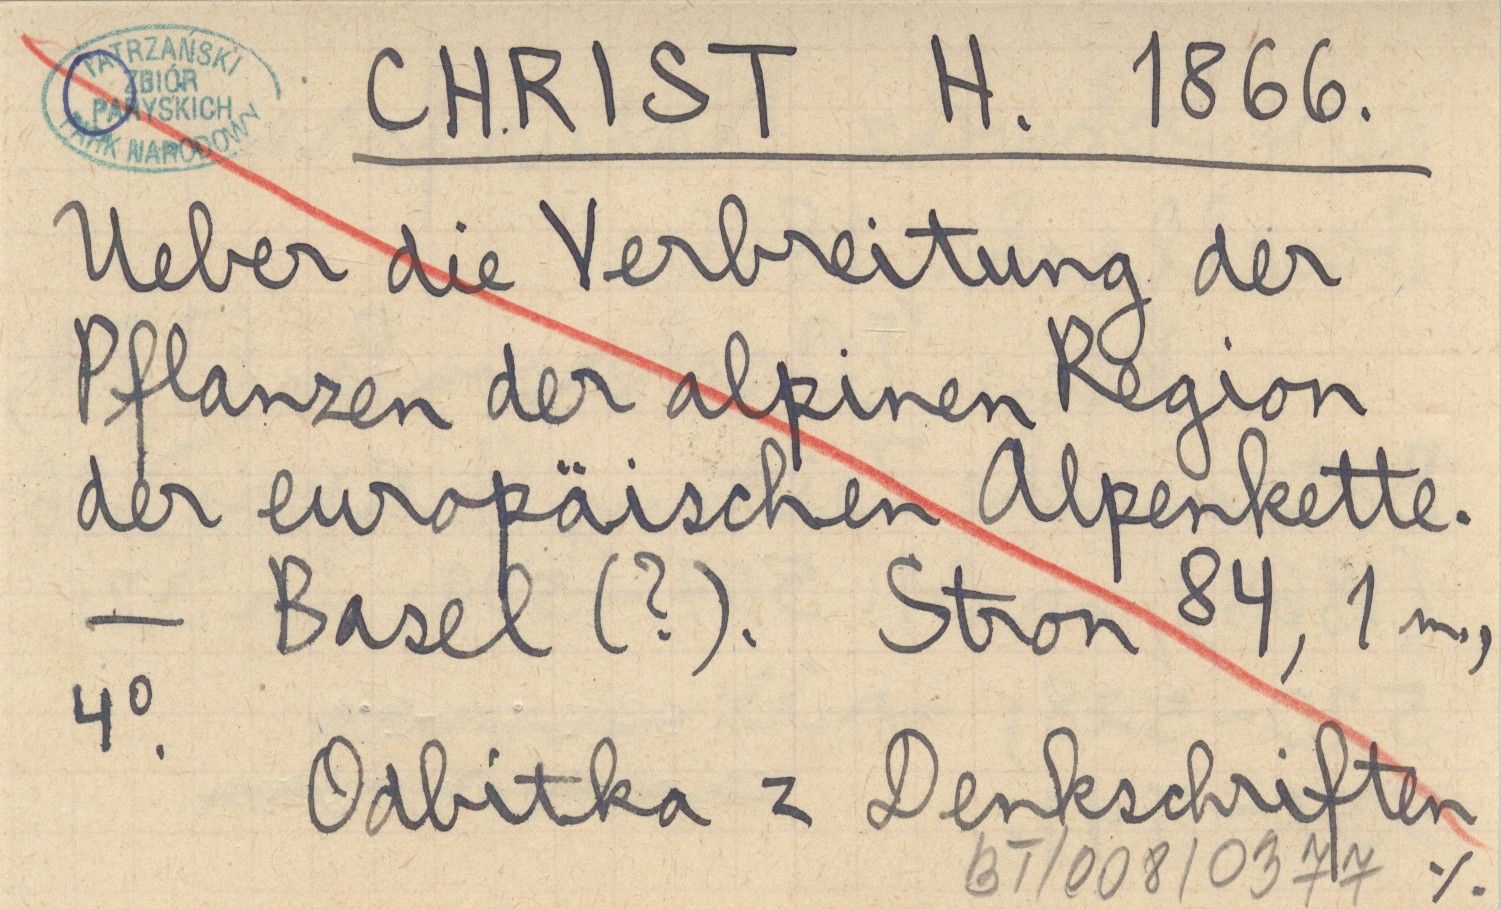 TATRZAŃSKI
ZBIÓR
PARYSKICH
PARK NARODOWY
CHRIST H. 1866.
Ueber die Verbreitung der
Pflanzen der alpinen Region
der europäischen Alpenkette.
— Basel (?). Stron 84, 1 m.,
4º.
Odbitka z Denkschriften
BT/008/0377 ./.